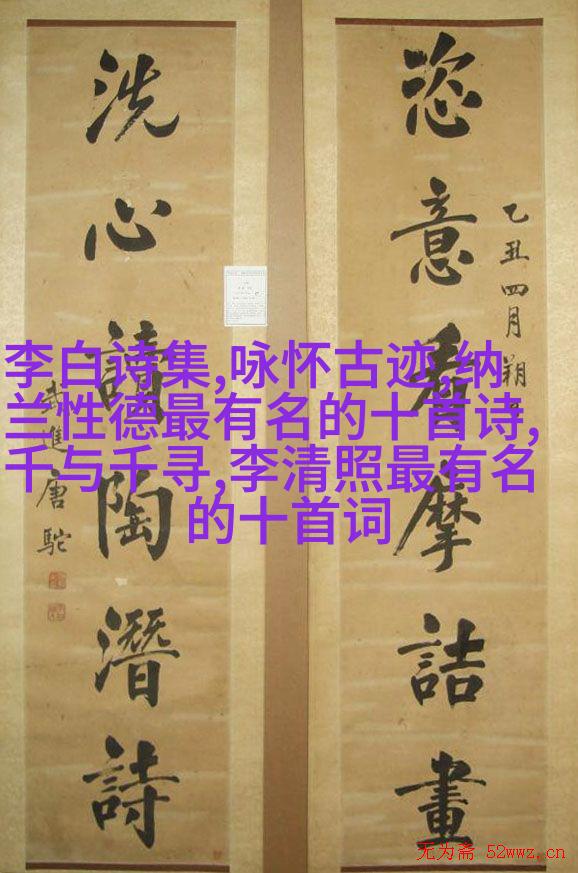 恣意看摩詰畫
乙丑四月朔
洗心讀陶潛詩
武進唐駝
李白诗集,咏怀古迹,纳
兰性德最有名的十首诗,
千与千寻,李清照最有名
的十首词
无为斋 52wwz.cn